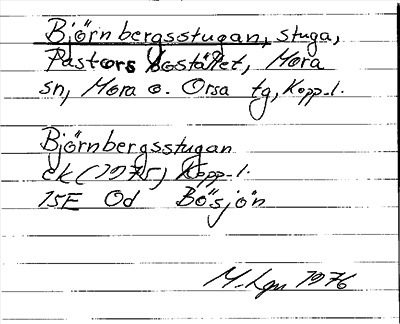 Björnbergsstugan, stuga,
Pastors bostället, Mora
sn, Mora o. Orsa tg, Kopp. l.
Björnbergsstugan
ek (1975) Kopp. l.
15E Od Bösjön
M. Lgn 1976